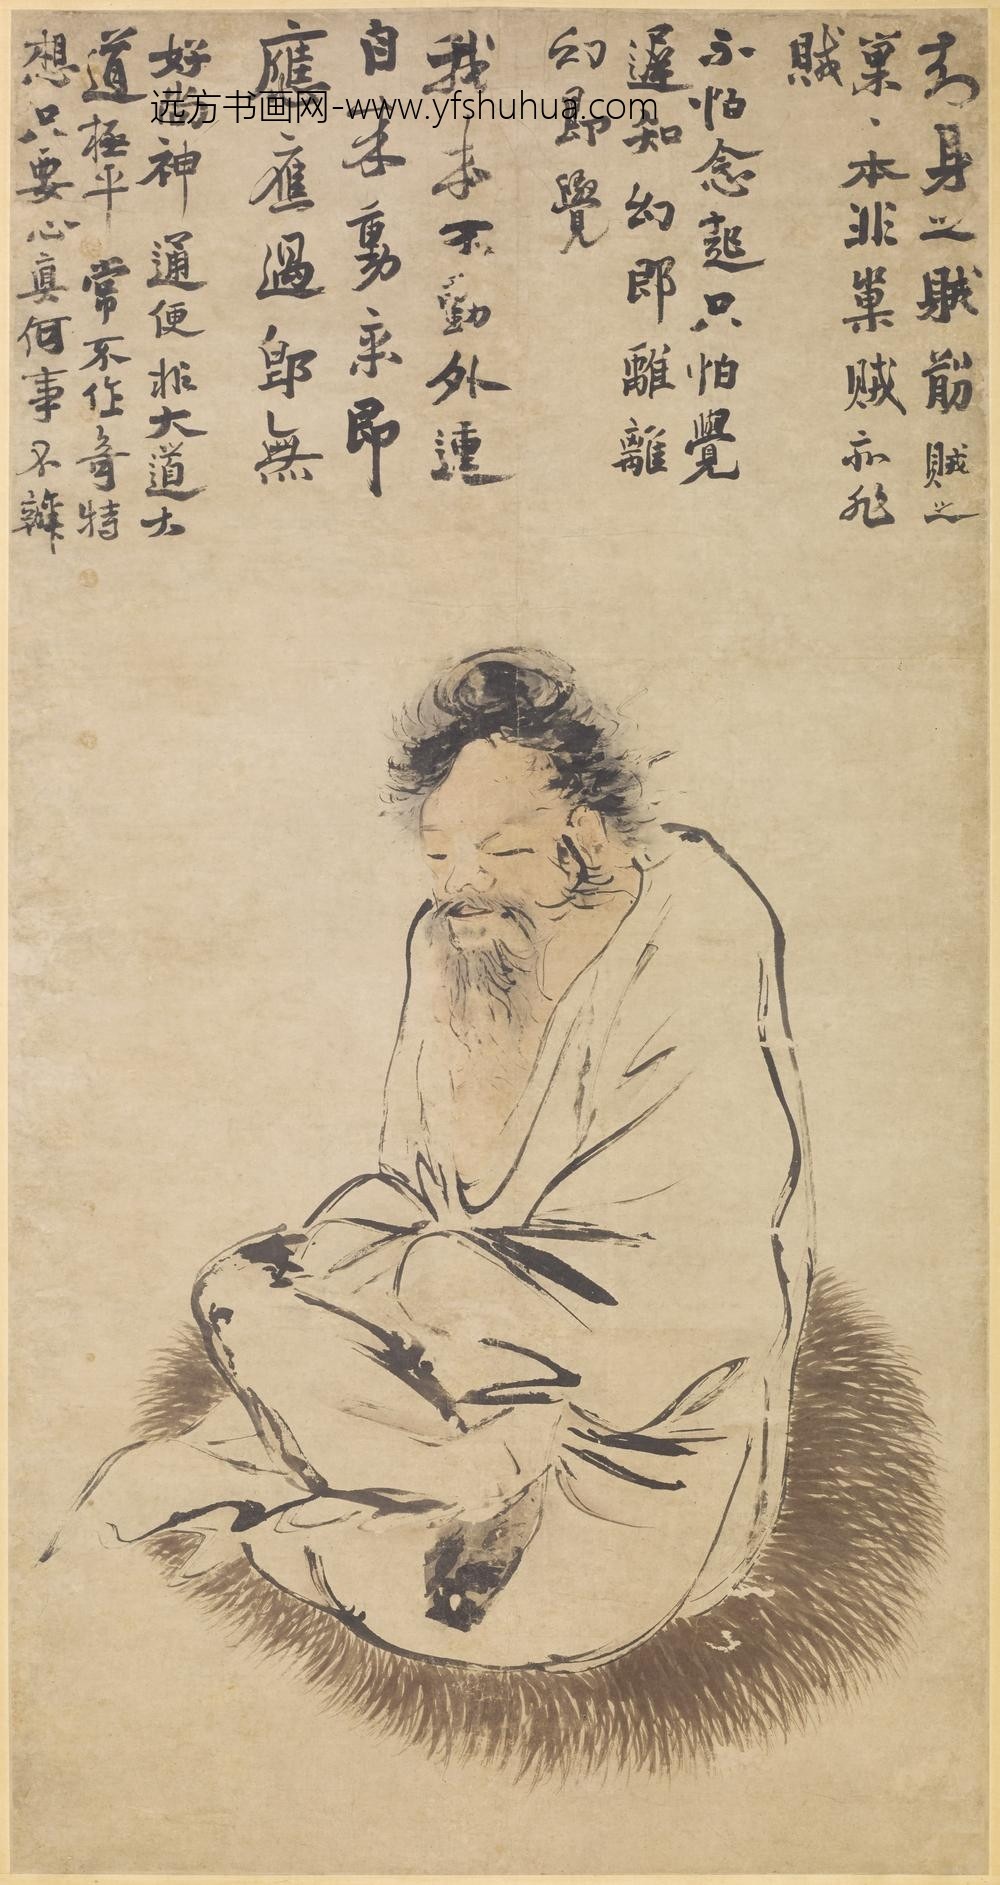 身之賊前賊之
巢、本非巢賊亦非
賊
不怕念起只怕覺
遲知幻即離離
幻即覺
我本不動外塵
自來動來即
應應過即無
好神通便非大道大
道極平常不作奇特
想只要心真何事不辦
远方书画网-www.yfshuhua.com